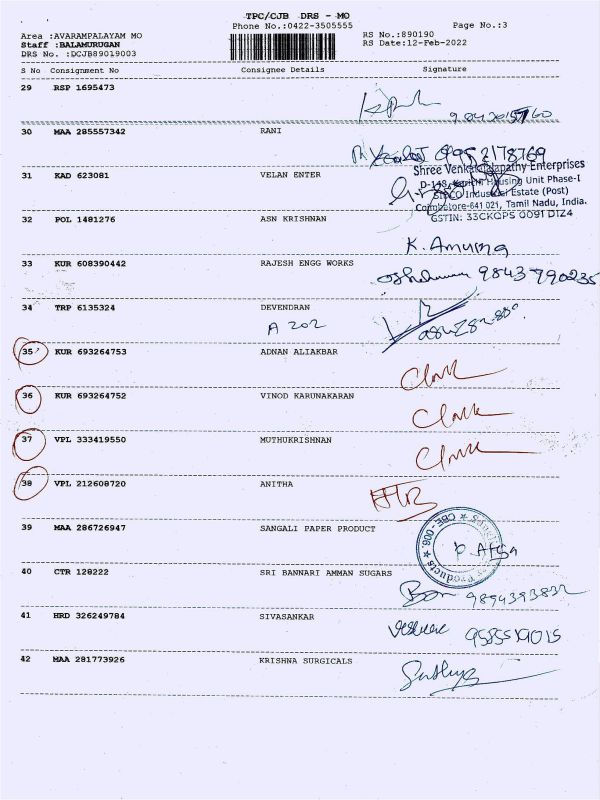 TPC/CJB DRS - MO
Phone No.:0422-3505555
Page No.:3
Area :AVARAMPALAYAM MO
RS No.:890190
Staff :BALAMURUGAN
RS Date:12-Feb-2022
DRS No. :DCJB89019003
S No Consignment No Consignee Details Signature
29 RSP 1695473
30 MAA 285557342 RANI
9952178769
31 KAD 623081 VELAN ENTER
Shree Venkatalapathy Enterprises
D-148, Housing Unit Phase-I
SIDCO Industrial Estate (Post)
Coimbatore-641 021, Tamil Nadu, India.
GSTIN: 33CKQPS 0091 D1Z4
32 POL 1481276 ASN KRISHNAN
K. Amurna
33 KUR 608390442 RAJESH ENGG WORKS
9843790235
34 TRP 6135324 DEVENDRAN
A 202
35 KUR 693264753 ADNAN ALIAKBAR
36 KUR 693264752 VINOD KARUNAKARAN
37 VPL 333419550 MUTHUKRISHNAN
38 VPL 212608720 ANITHA
39 MAA 286726947 SANGALI PAPER PRODUCT
CBE - 006
40 CTR 128222 SRI BANNARI AMMAN SUGARS
9894393832
41 HRD 326249784 SIVASANKAR
42 MAA 281773926 KRISHNA SURGICALS